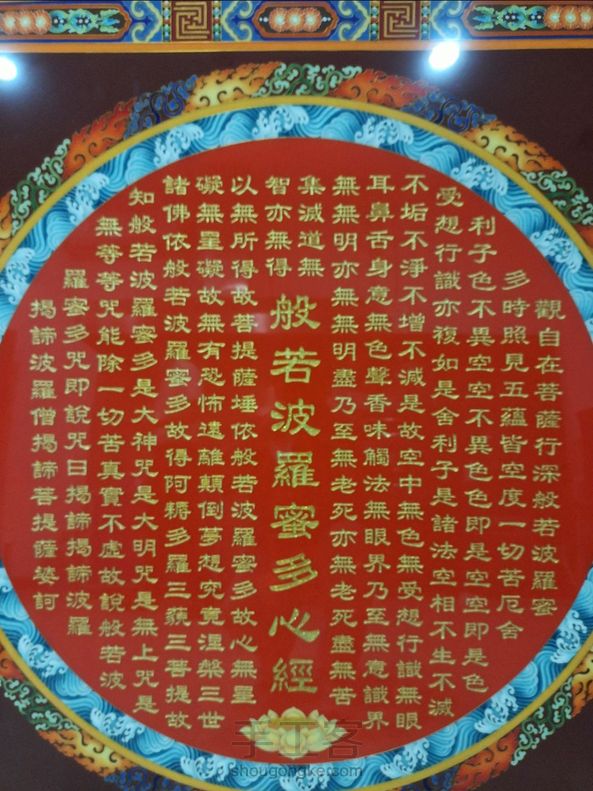 觀自在菩薩行深般若波羅蜜
多時照見五蘊皆空度一切苦厄舍
利子色不異空空不異色色即是空空即是色
受想行識亦復如是舍利子是諸法空相不生不滅
不垢不淨不增不減是故空中無色無受想行識無眼
耳鼻舌身意無色聲香味觸法無眼界乃至無意識界
無無明亦無無明盡乃至無老死亦無老死盡無苦
集滅道無
智亦無得
般若波羅蜜多心經
以無所得故菩提薩埵依般若波羅蜜多故心無罣
礙無罣礙故無有恐怖遠離顛倒夢想究竟涅槃三世
諸佛依般若波羅蜜多故得阿耨多羅三藐三菩提故
知般若波羅蜜多是大神咒是大明咒是無上咒是
無等等咒能除一切苦真實不虛故說般若波
羅蜜多咒即說咒曰揭諦揭諦波羅
揭諦波羅僧揭諦菩提薩婆訶
手工客
shougongker.com